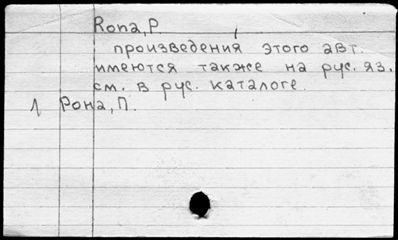 Rona, P.
произведения этого авт.
имеются также на рус. яз.
см. в рус. каталоге.
1 Рона, П.